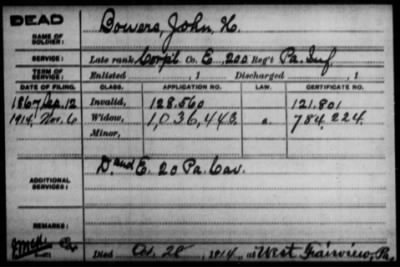 DEAD
NAME OF SOLDIER: Bowers, John H.
SERVICE: Late rank Corp'l Co. E, 200 Reg't Pa. Inf
TERM OF SERVICE: Enlisted , 1 Discharged , 1
DATE OF FILING. CLASS. APPLICATION NO. LAW. CERTIFICATE NO.
1867 Sep. 12 Invalid, 128.560 121.801
1914, Nov. 6 Widow, 1,036,443. 784,224.
Minor,
ADDITIONAL SERVICES: D and E. 20 Pa. Cav.
REMARKS:
Died Oct. 28, 1914, at West Fairview, Pa.